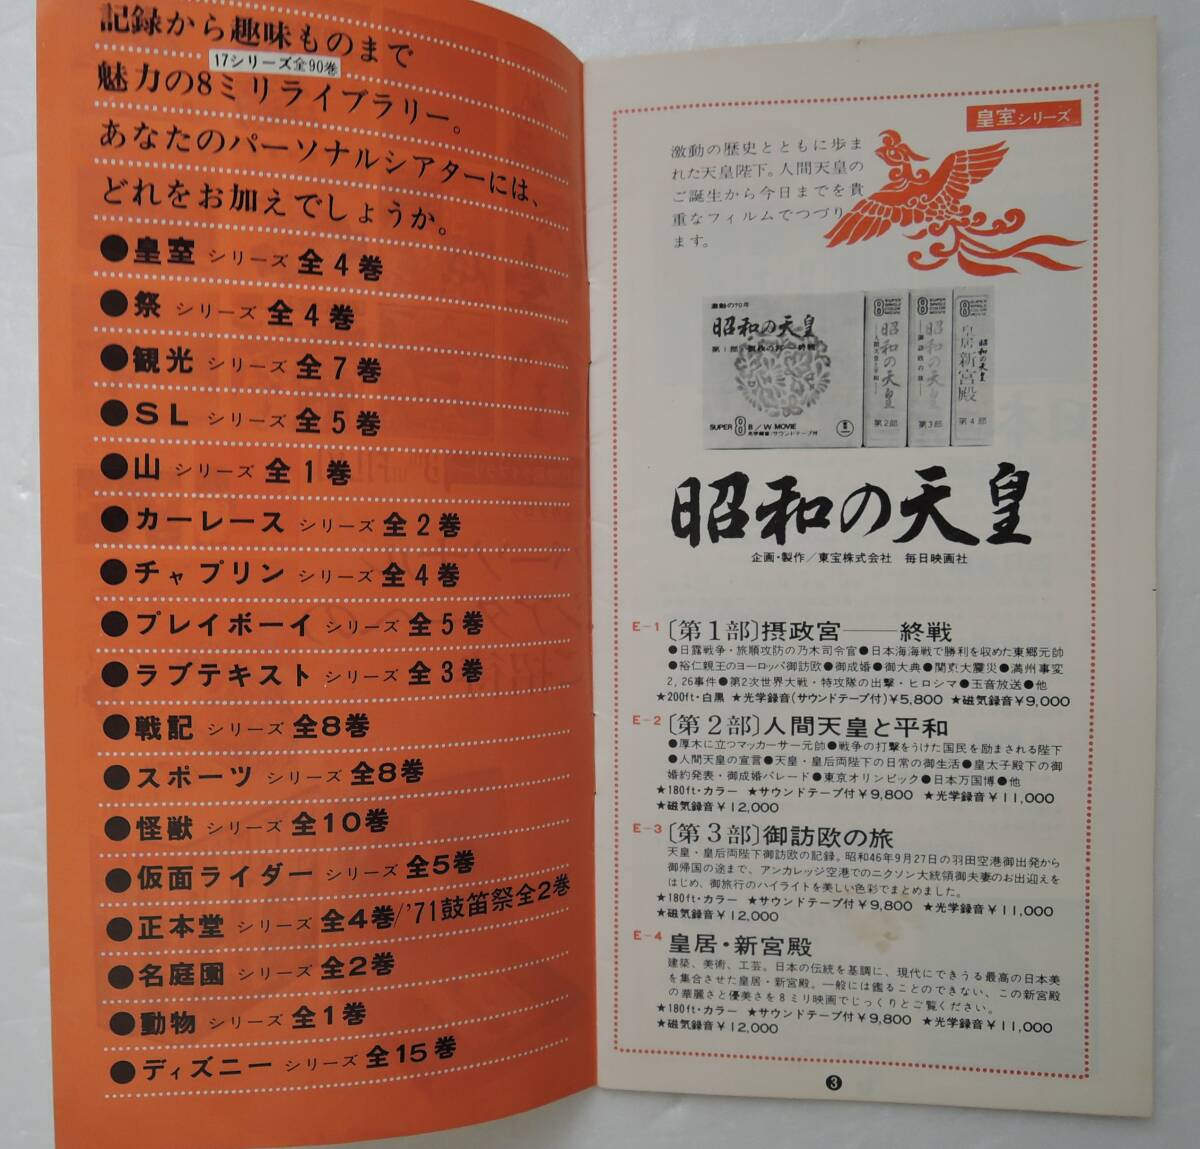 記録から趣味ものまで
17シリーズ全90巻
魅力の8ミリライブラリー。
あなたのパーソナルシアターには、
どれをお加えでしょうか。
●皇室 シリーズ 全4巻
●祭 シリーズ 全4巻
●観光 シリーズ 全7巻
●SL シリーズ 全5巻
●山 シリーズ 全1巻
●カーレース シリーズ 全2巻
●チャプリン シリーズ 全4巻
●プレイボーイ シリーズ 全5巻
●ラブテキスト シリーズ 全3巻
●戦記 シリーズ 全8巻
●スポーツ シリーズ 全8巻
●怪獣 シリーズ 全10巻
●仮面ライダー シリーズ 全5巻
●正本堂 シリーズ 全4巻/'71鼓笛祭全2巻
●名庭園 シリーズ 全2巻
●動物 シリーズ 全1巻
●ディズニー シリーズ 全15巻
皇室シリーズ
激動の歴史とともに歩ま
れた天皇陛下。人間天皇の
ご誕生から今日までを貴
重なフィルムでつづり
ます。
激動の70年
昭和の天皇
第1部 摂政の宮—終戦
SUPER 8 B/W MOVIE
光学録音/サウンドテープ付
8
昭和の天皇
—人間天皇と平和—
第2部
8
昭和の天皇
—御訪欧の旅—
第3部
8
昭和の天皇
皇居新宮殿
第4部
昭和の天皇
企画・製作/東宝株式会社 毎日映画社
E-1 〔第1部〕摂政宮——終戦
●日露戦争・旅順攻防の乃木司令官●日本海海戦で勝利を収めた東郷元帥
●裕仁親王のヨーロッパ御訪欧●御成婚●御大典●関東大震災●満州事変
2,26事件●第2次世界大戦・特攻隊の出撃・ヒロシマ●玉音放送●他
★200ft・白黒 ★光学録音(サウンドテープ付)¥5,800 ★磁気録音¥9,000
E-2 〔第2部〕人間天皇と平和
●厚木に立つマッカーサー元帥●戦争の打撃をうけた国民を励まされる陛下
●人間天皇の宣言●天皇・皇后両陛下の日常の御生活●皇太子殿下の御
婚約発表・御成婚パレード●東京オリンピック●日本万国博●他
★180ft・カラー ★サウンドテープ付¥9,800 ★光学録音¥11,000
★磁気録音¥12,000
E-3 〔第3部〕御訪欧の旅
天皇・皇后両陛下御訪欧の記録。昭和46年9月27日の羽田空港御出発から
御帰国の途まで、アンカレッジ空港でのニクソン大統領御夫妻のお出迎えを
はじめ、御旅行のハイライトを美しい色彩でまとめました。
★180ft・カラー ★サウンドテープ付¥9,800 ★光学録音¥11,000
★磁気録音¥12,000
E-4 皇居・新宮殿
建築、美術、工芸。日本の伝統を基調に、現代にできうる最高の日本美
を集合させた皇居・新宮殿。一般には鑑ることのできない、この新宮殿
の華麗さと優美さを8ミリ映画でじっくりとご覧ください。
★180ft・カラー ★サウンドテープ付¥9,800 ★光学録音¥11,000
★磁気録音¥12,000
3